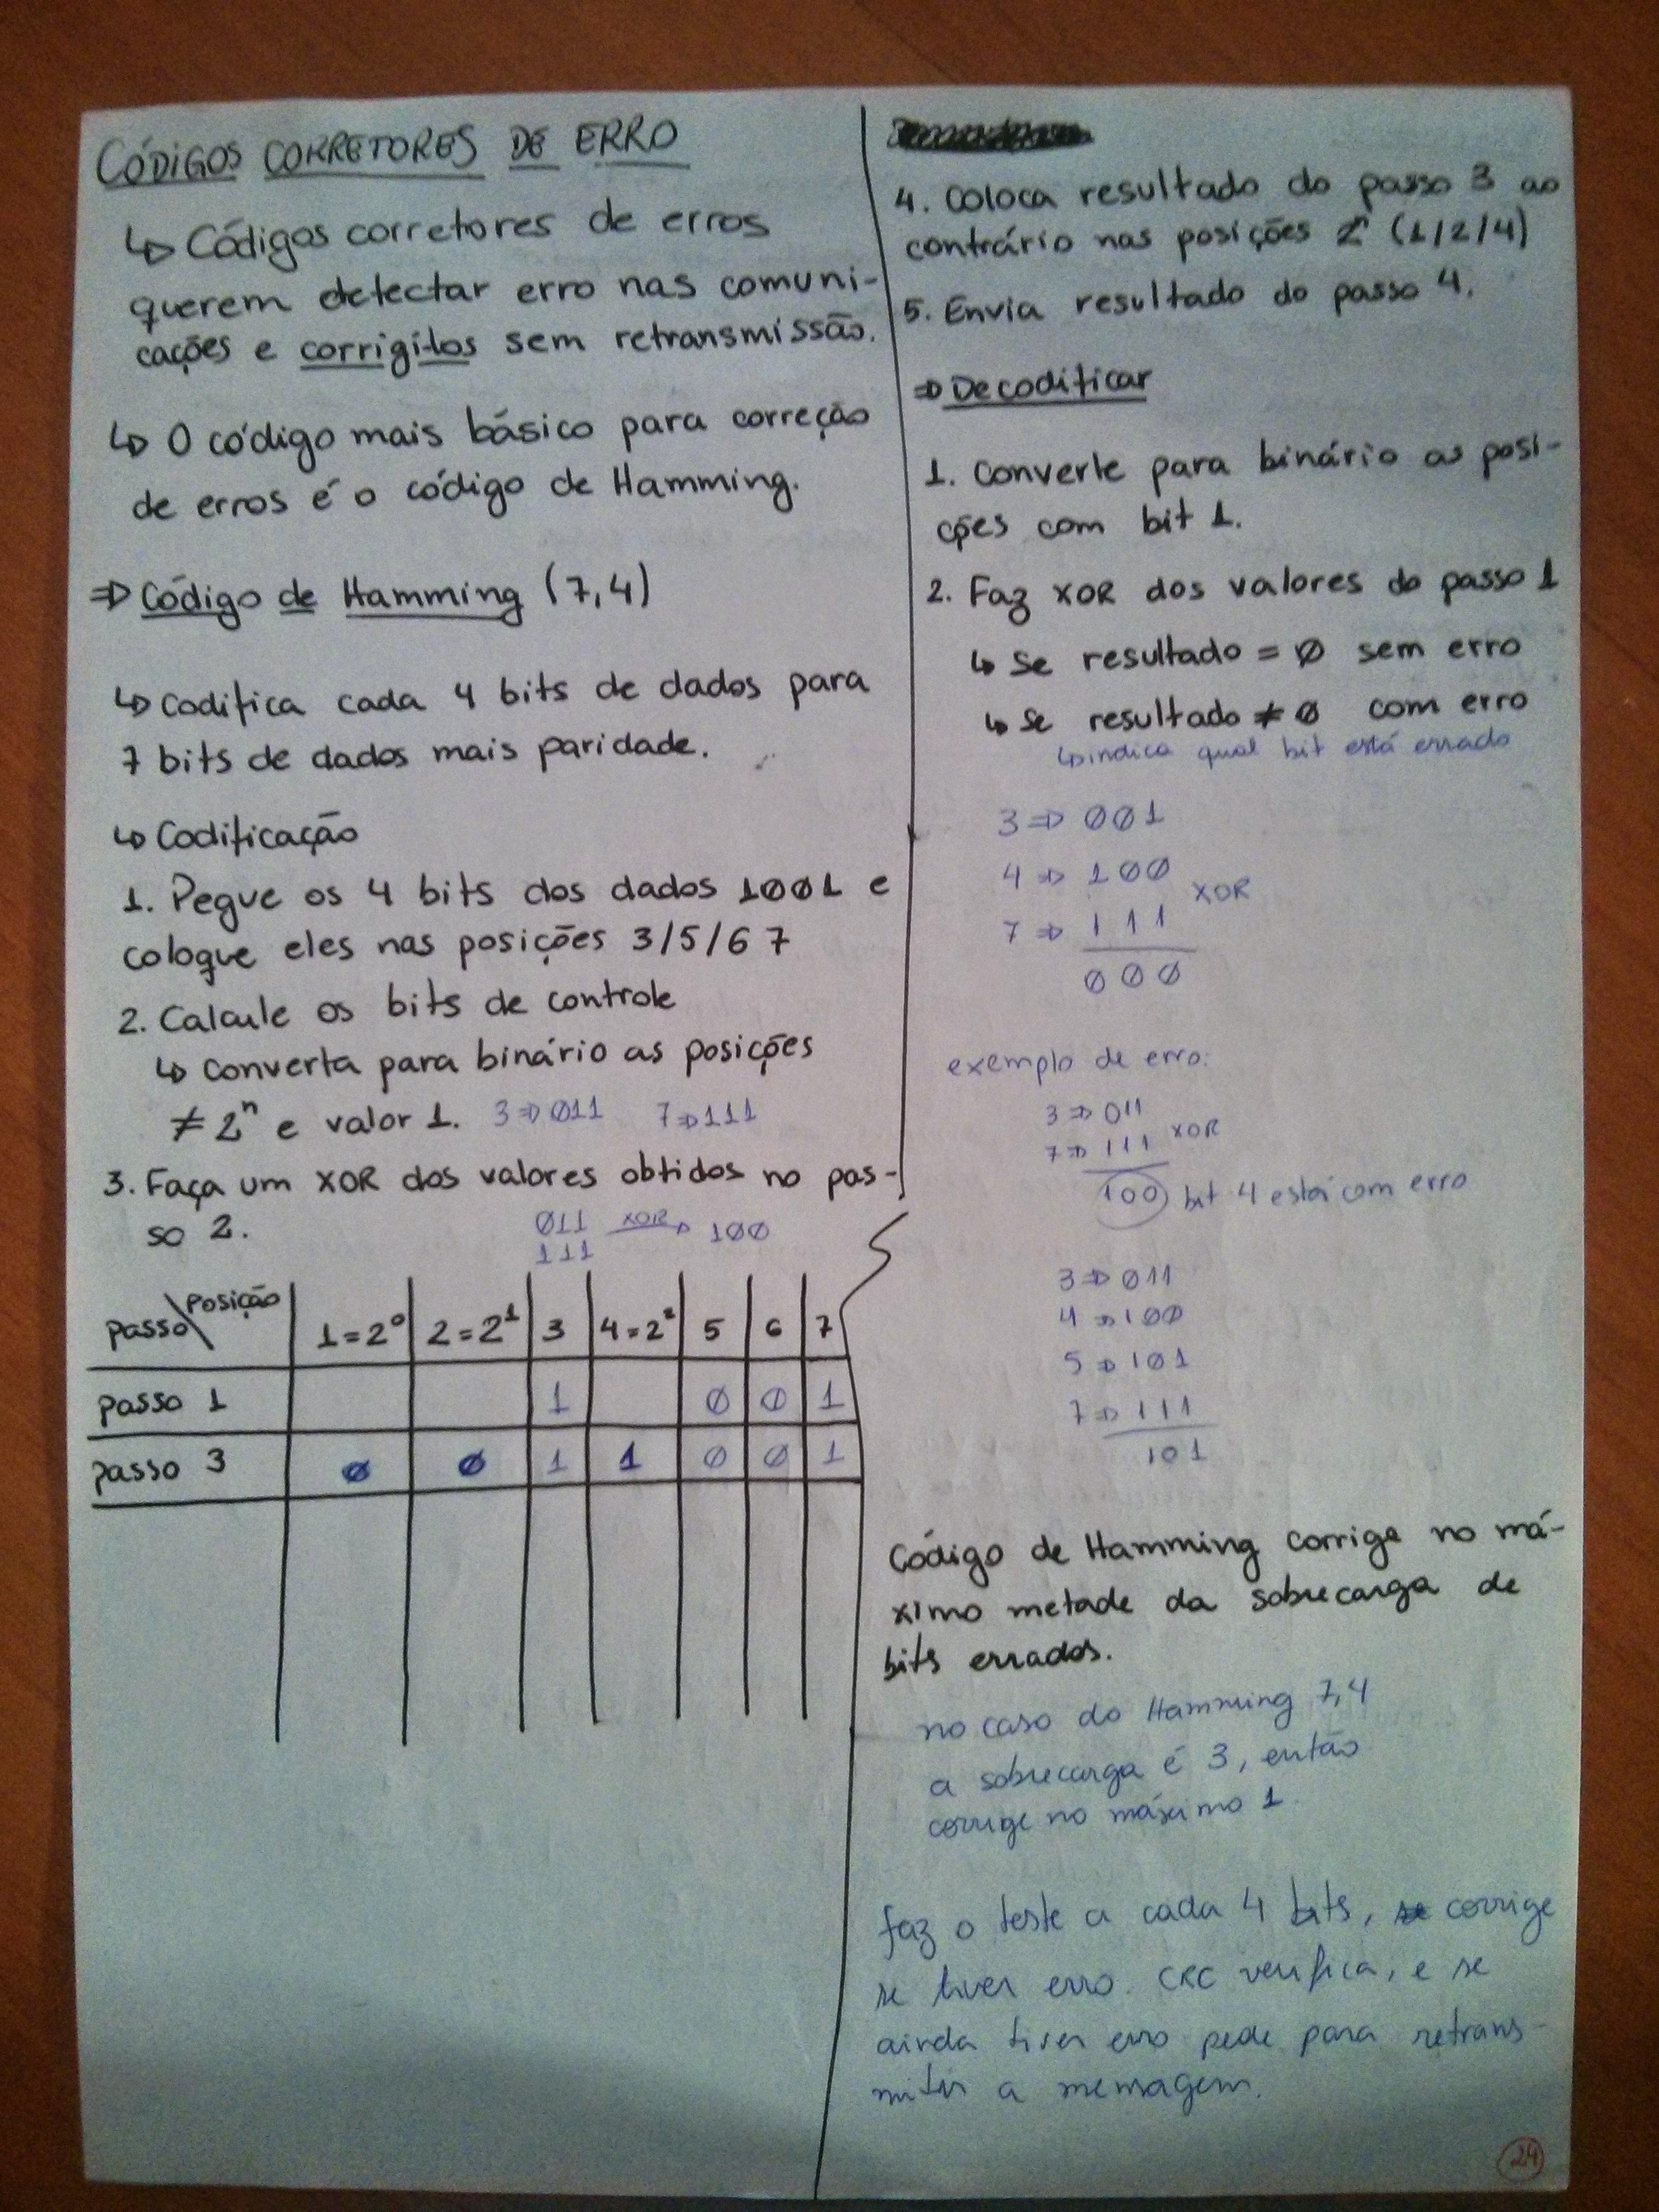 CÓDIGOS CORRETORES DE ERRO
↳ Códigos corretores de erros
querem detectar erro nas comuni-
cações e corrigí-los sem retransmissão.
↳ O código mais básico para correção
de erros é o código de Hamming.
⇒ Código de Hamming (7,4)
↳ Codifica cada 4 bits de dados para
7 bits de dados mais paridade.
↳ Codificação
1. Pegue os 4 bits dos dados 1001 e
coloque eles nas posições 3/5/6 7
2. Calcule os bits de controle
↳ Converta para binário as posições
≠ 2ⁿ e valor 1. 3 ⇒ 011 7 ⇒ 111
3. Faça um XOR dos valores obtidos no pas-
so 2. 011 XOR → 100
111
Passo \ Posição 1=2⁰ 2=2¹ 3 4=2² 5 6 7
Passo 1 1 0 0 1
Passo 3 0 0 1 1 0 0 1
4. Coloca resultado do passo 3 ao
contrário nas posições 2ⁿ (1/2/4)
5. Envia resultado do passo 4.
⇒ Decodificar
1. Converte para binário as posi-
ções com bit 1.
2. Faz XOR dos valores do passo 1
↳ Se resultado = 0 sem erro
↳ Se resultado ≠ 0 com erro
↳ indica qual bit está errado
3 ⇒ 001
4 ⇒ 100
XOR
7 ⇒ 111
000
exemplo de erro:
3 ⇒ 011
XOR
7 ⇒ 111
100 bit 4 está com erro
3 ⇒ 011
4 ⇒ 100
5 ⇒ 101
7 ⇒ 111
101
Código de Hamming corrige no má-
ximo metade da sobrecarga de
bits errados.
no caso do Hamming 7,4
a sobrecarga é 3, então
corrige no máximo 1.
faz o teste a cada 4 bits, corrige
se tiver erro. CRC verifica, e se
ainda tiver erro pede para retrans-
mitir a mensagem.
24